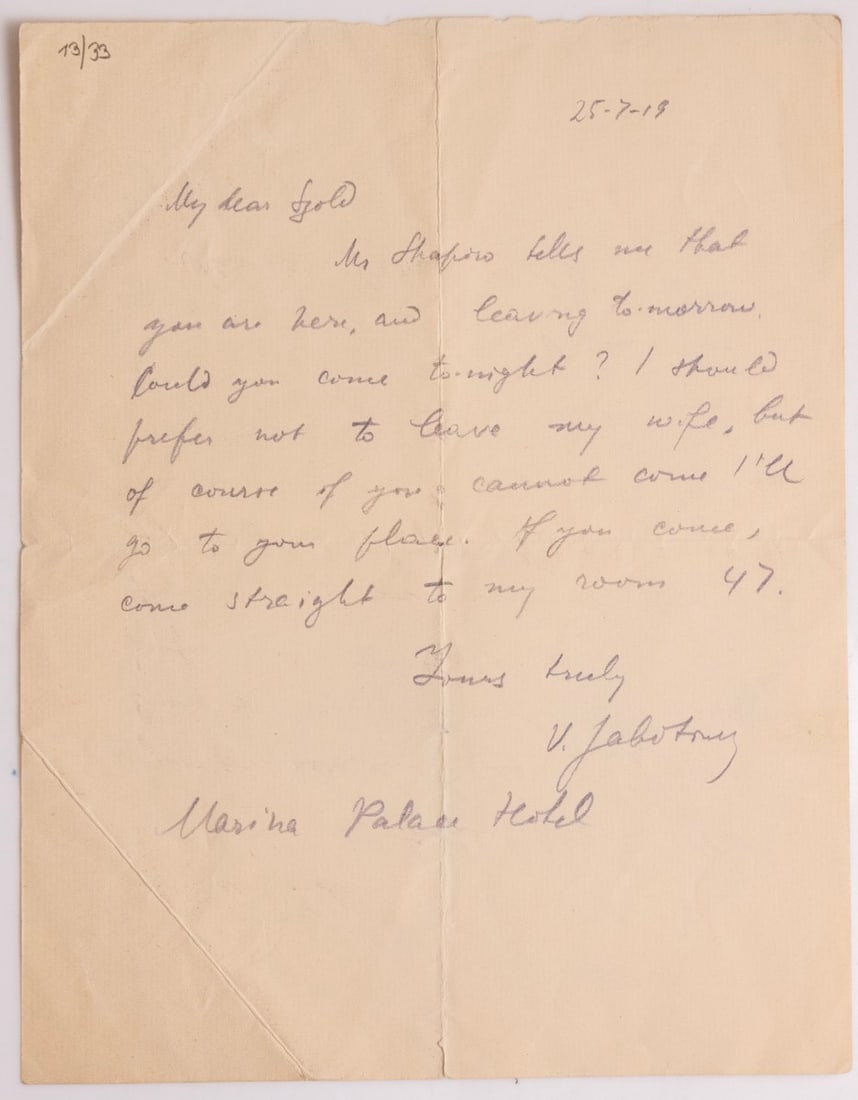 13/33
25-7-19
My dear Szold
Mr Shapiro tells me that
you are here, and leaving to-morrow.
Could you come to-night? I should
prefer not to leave my wife, but
of course if you cannot come I'll
go to your place. If you come,
come straight to my room 47.
Yours truly
V. Jabotinsky
Marina Palace Hotel